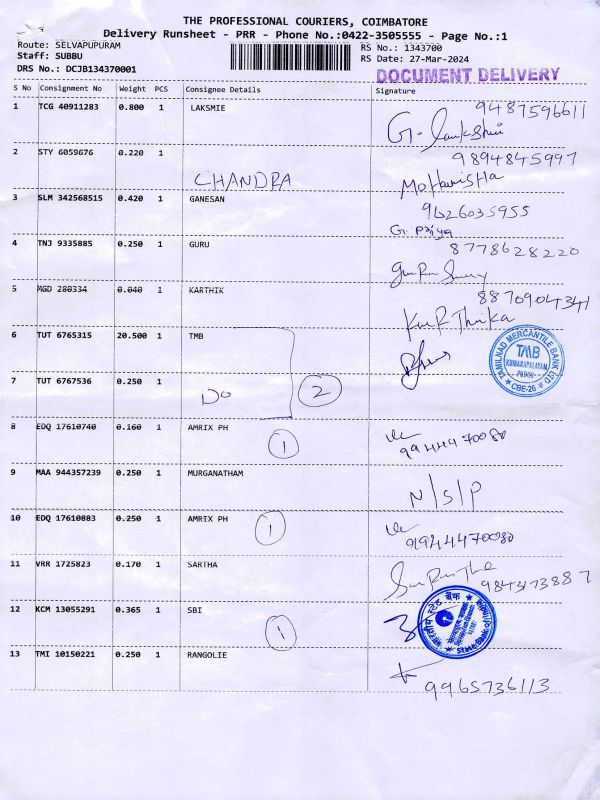 THE PROFESSIONAL COURIERS, COIMBATORE
Delivery Runsheet - PRR - Phone No.:0422-3505555 - Page No.:1
Route: SELVAPUPURAM
Staff: SUBBU
DRS No.: DCJB134370001
RS No.: 1343700
RS Date: 27-Mar-2024
DOCUMENT DELIVERY
S No Consignment No Weight PCS Consignee Details Signature
1 TCG 40911283 0.800 1 LAKSMIE 9487596611
2 STY 6059676 0.220 1 9894845997
CHANDRA
3 SLM 342568515 0.420 1 GANESAN 9626035955
G. Priya
4 TNJ 9335885 0.250 1 GURU 8778628220
5 MGD 280334 0.040 1 KARTHIK 8870904341
6 TUT 6765315 20.500 1 TMB
TAMILNAD MERCANTILE BANK LTD
TMB
KUMARAPALAYAM
CBE-26
7 TUT 6767536 0.250 1
Do 2
8 EDQ 17610740 0.160 1 AMRIX PH
1 9944470080
9 MAA 944357239 0.250 1 MURGANATHAM
N/S/P
10 EDQ 17610883 0.250 1 AMRIX PH 1
9944470080
11 VRR 1725823 0.170 1 SARTHA
9843173887
12 KCM 13055291 0.365 1 SBI
1
भारतीय स्टेट बैंक
State Bank of
13 TMI 10150221 0.250 1 RANGOLIE
9965736113